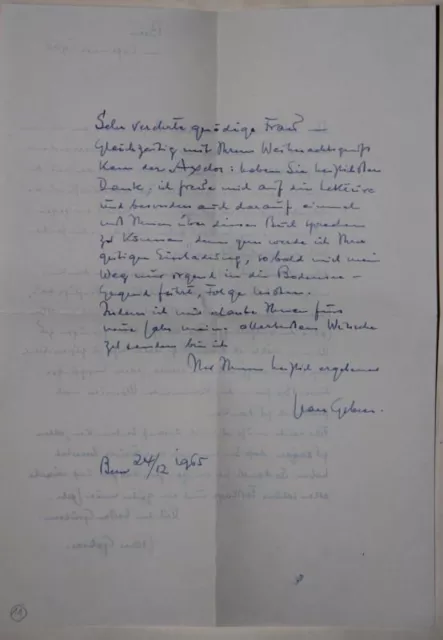 Sehr verehrte gnädige Frau —
Gleichzeitig mit Ihrem Weihnachtsgruß
kam der Axelos: haben Sie herzlichsten
Dank; ich freue mich auf die Lektüre
und besonders auch darauf, einmal
mit Ihnen über dieses Buch sprechen
zu können, denn gern werde ich Ihrer
gütigen Einladung, sobald mich mein
Weg nur irgend in die Bodensee-
Gegend führt, Folge leisten.
Indem ich mir erlaube Ihnen fürs
neue Jahr meine allerbesten Wünsche
zu senden bin ich
Ihr Ihnen herzlich ergebener
Bern 24/12 1965